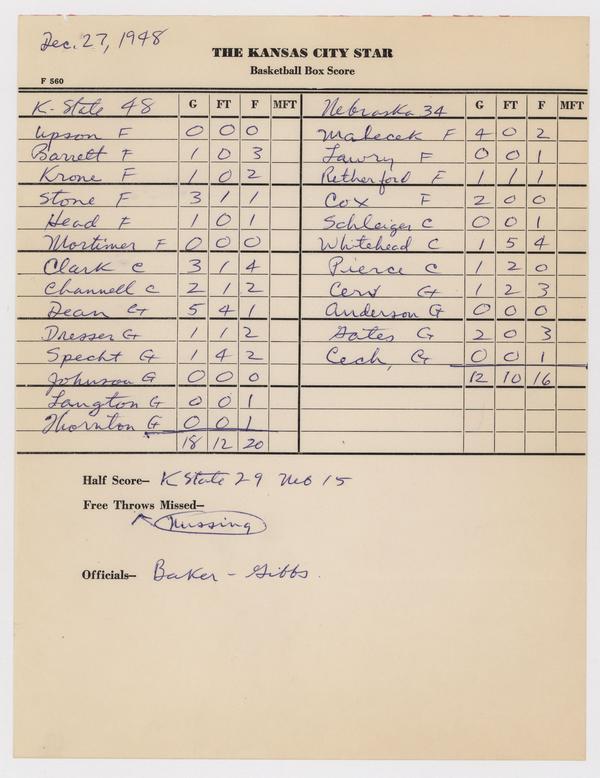 Dec. 27, 1948
THE KANSAS CITY STAR
Basketball Box Score
F 560
K. State 48 G FT F MFT Nebraska 34 G FT F MFT
Upson F 0 0 0 Malecek F 4 0 2
Barrett F 1 0 3 Lawry F 0 0 1
Krone F 1 0 2 Retherford F 1 1 1
Stone F 3 1 1 Cox F 2 0 0
Head F 1 0 1 Schleiger C 0 0 1
Mortimer F 0 0 0 Whitehead C 1 5 4
Clark C 3 1 4 Pierce C 1 2 0
Channell C 2 1 2 Cerv G 1 2 3
Dean G 5 4 1 Anderson G 0 0 0
Dresser G 1 1 2 Gates G 2 0 3
Specht G 1 4 2 Cech, G 0 0 1
Johnson G 0 0 0 12 10 16
Langton G 0 0 1
Thornton G 0 0 1
18 12 20
Half Score— K State 29 Neb 15
Free Throws Missed—
Missing
Officials— Baker - Gibbs.